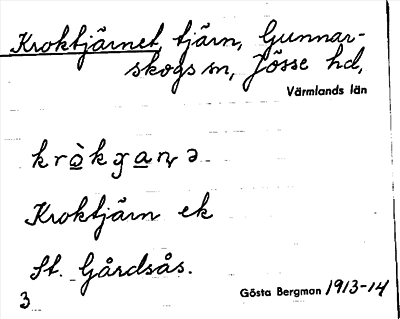 Kroktjärnet, tjärn, Gunnar-
skogs sn, Jösse hd,
Värmlands län
Kroktjärn ek
St. Gårdsås.
3
Gösta Bergman 1913-14